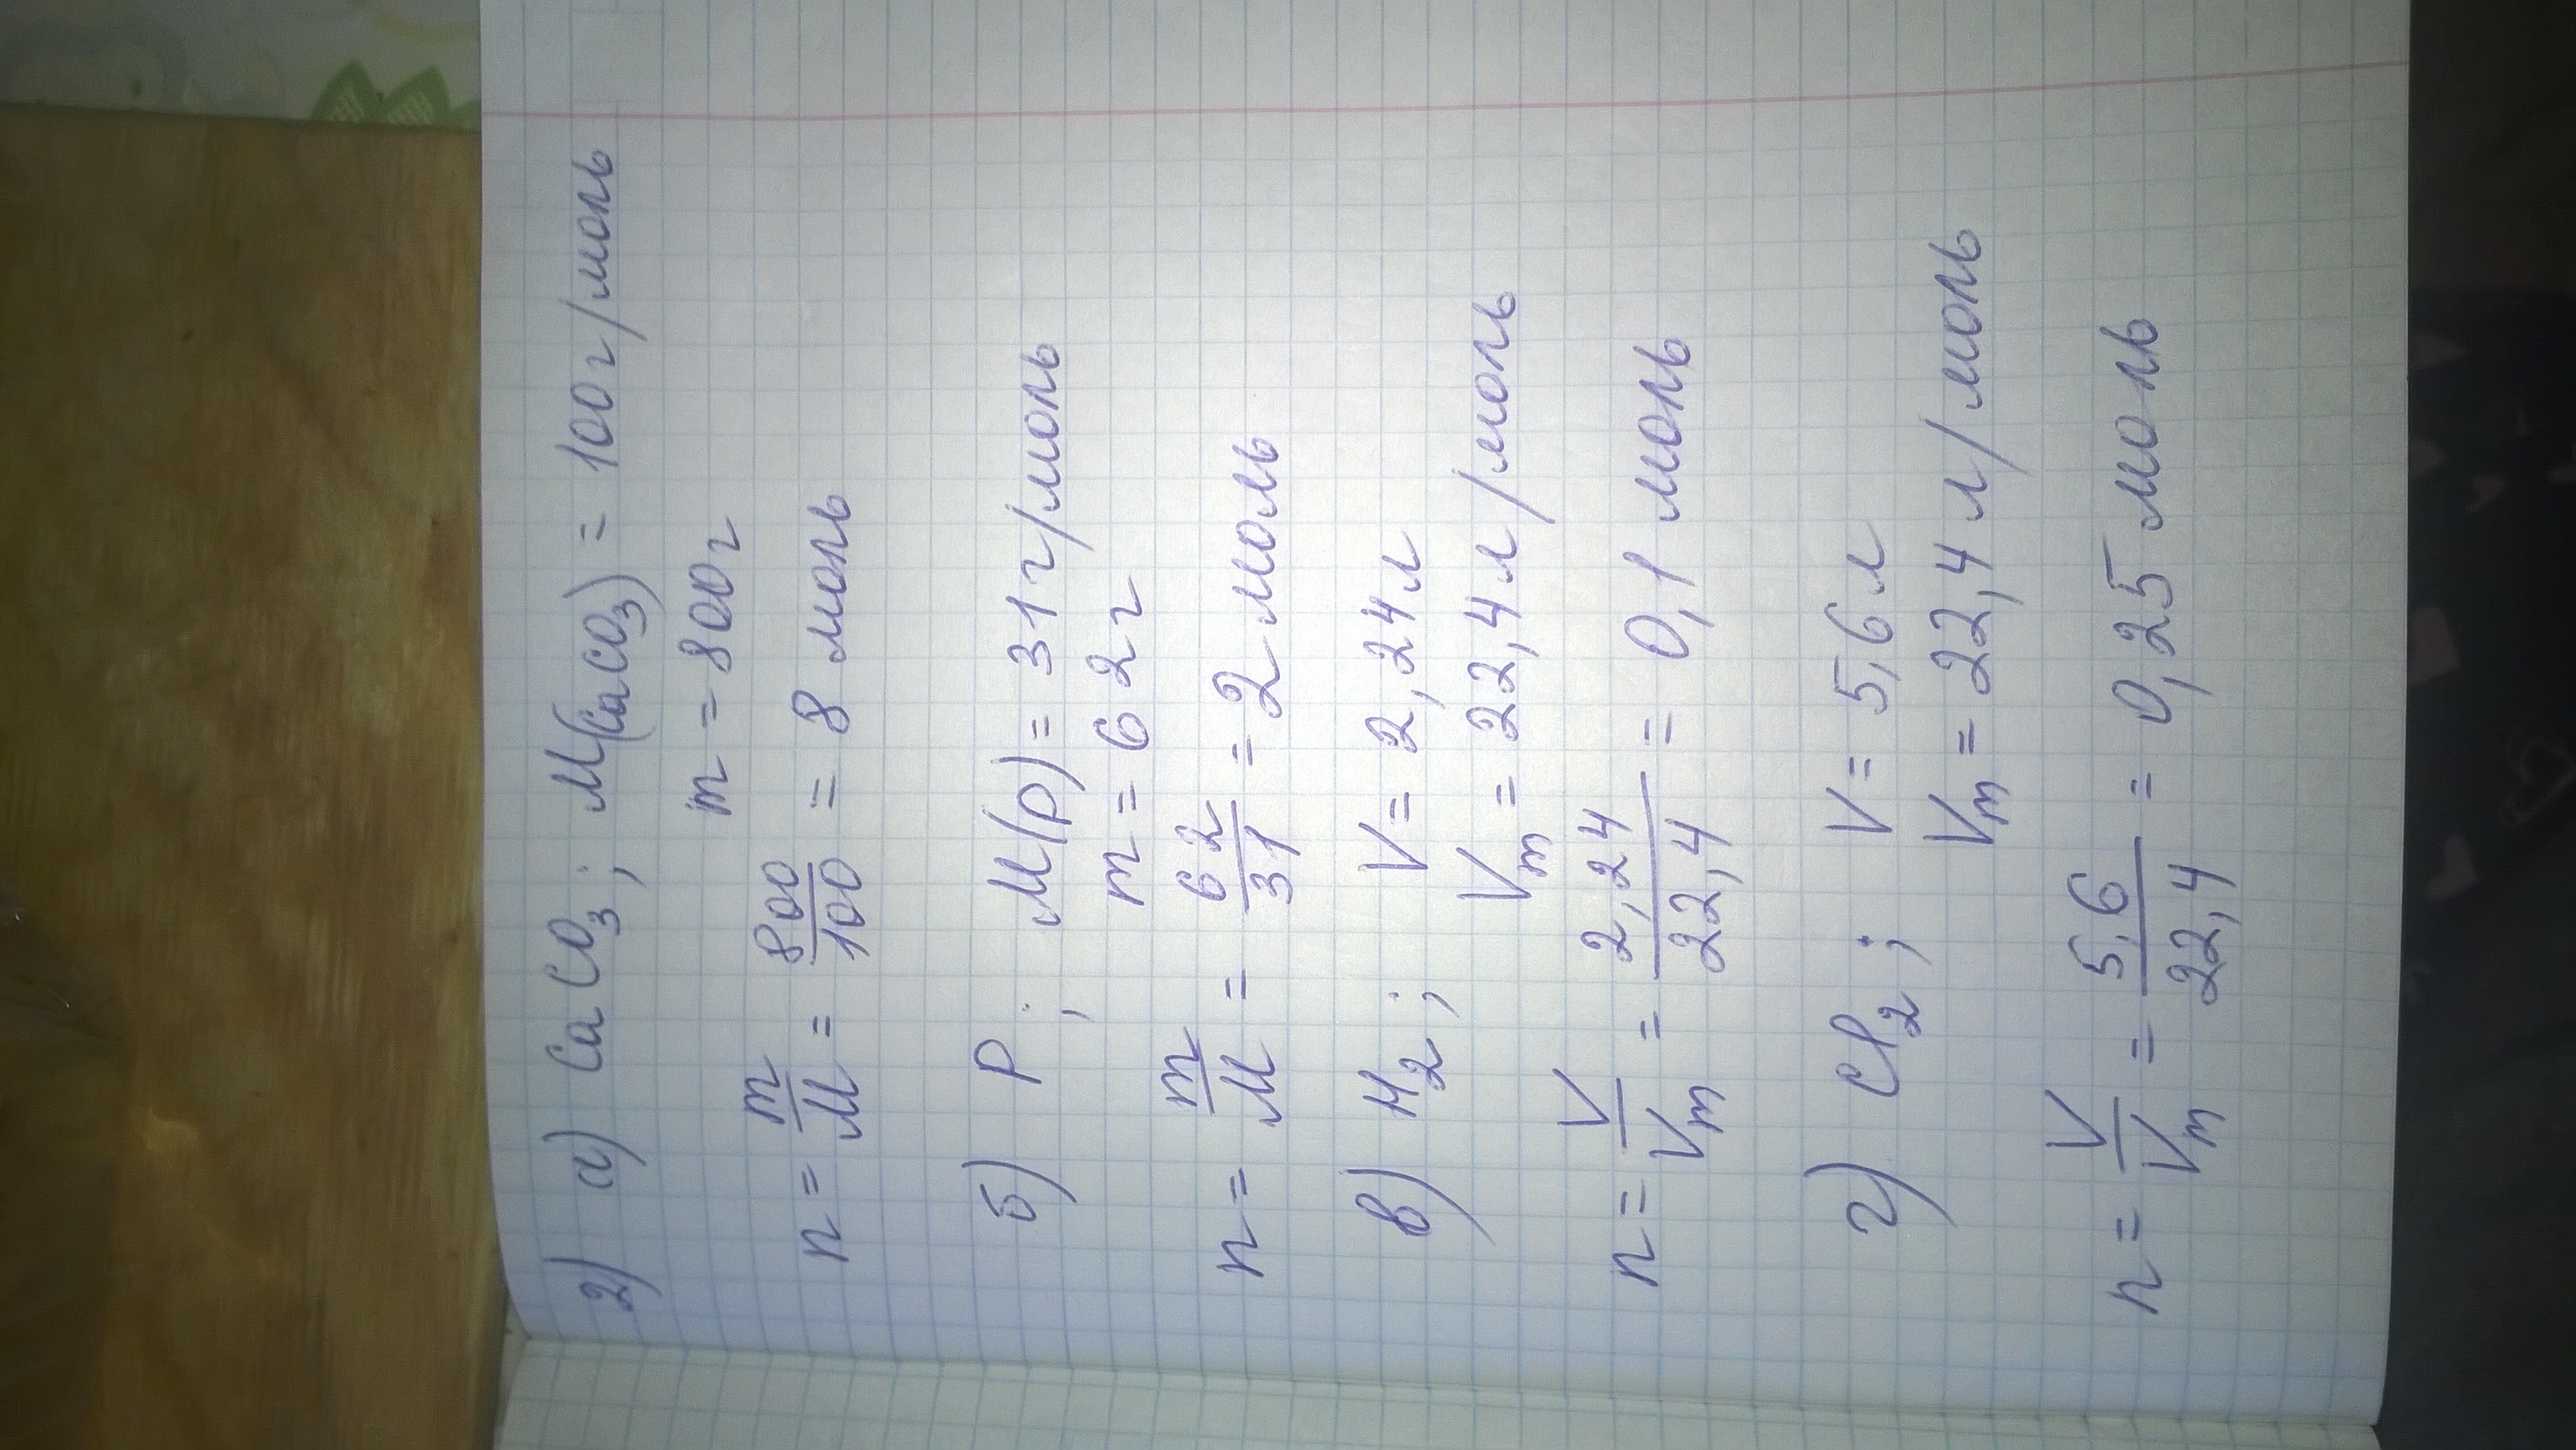 2) а) CaCO₃; M(CaCO₃) = 100 г/моль
m = 800 г
n = m/M = 800/100 = 8 моль
б) P; M(P) = 31 г/моль
m = 62 г
n = m/M = 62/31 = 2 моль
в) H₂; V = 2,24 л
Vₘ = 22,4 л/моль
n = V/Vₘ = 2,24/22,4 = 0,1 моль
г) Cl₂; V = 5,6 л
Vₘ = 22,4 л/моль
n = V/Vₘ = 5,6/22,4 = 0,25 моль